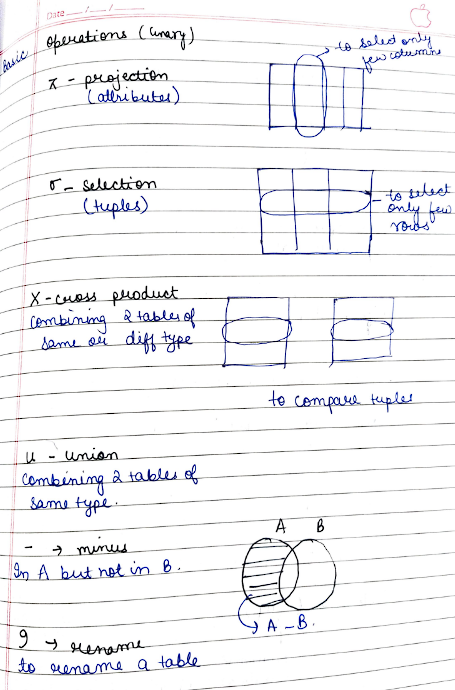 Date __/__/__
Basic operations (Unary)
to select only
few columns
π - projection
(attributes)
σ - selection
(tuples)
to select
only few
rows
X - cross product
Combining 2 tables of
same or diff type
to compare tuples
U - union
Combining 2 tables of
same type.
- → minus
In A but not in B.
A B
A - B.
g → rename
to rename a table